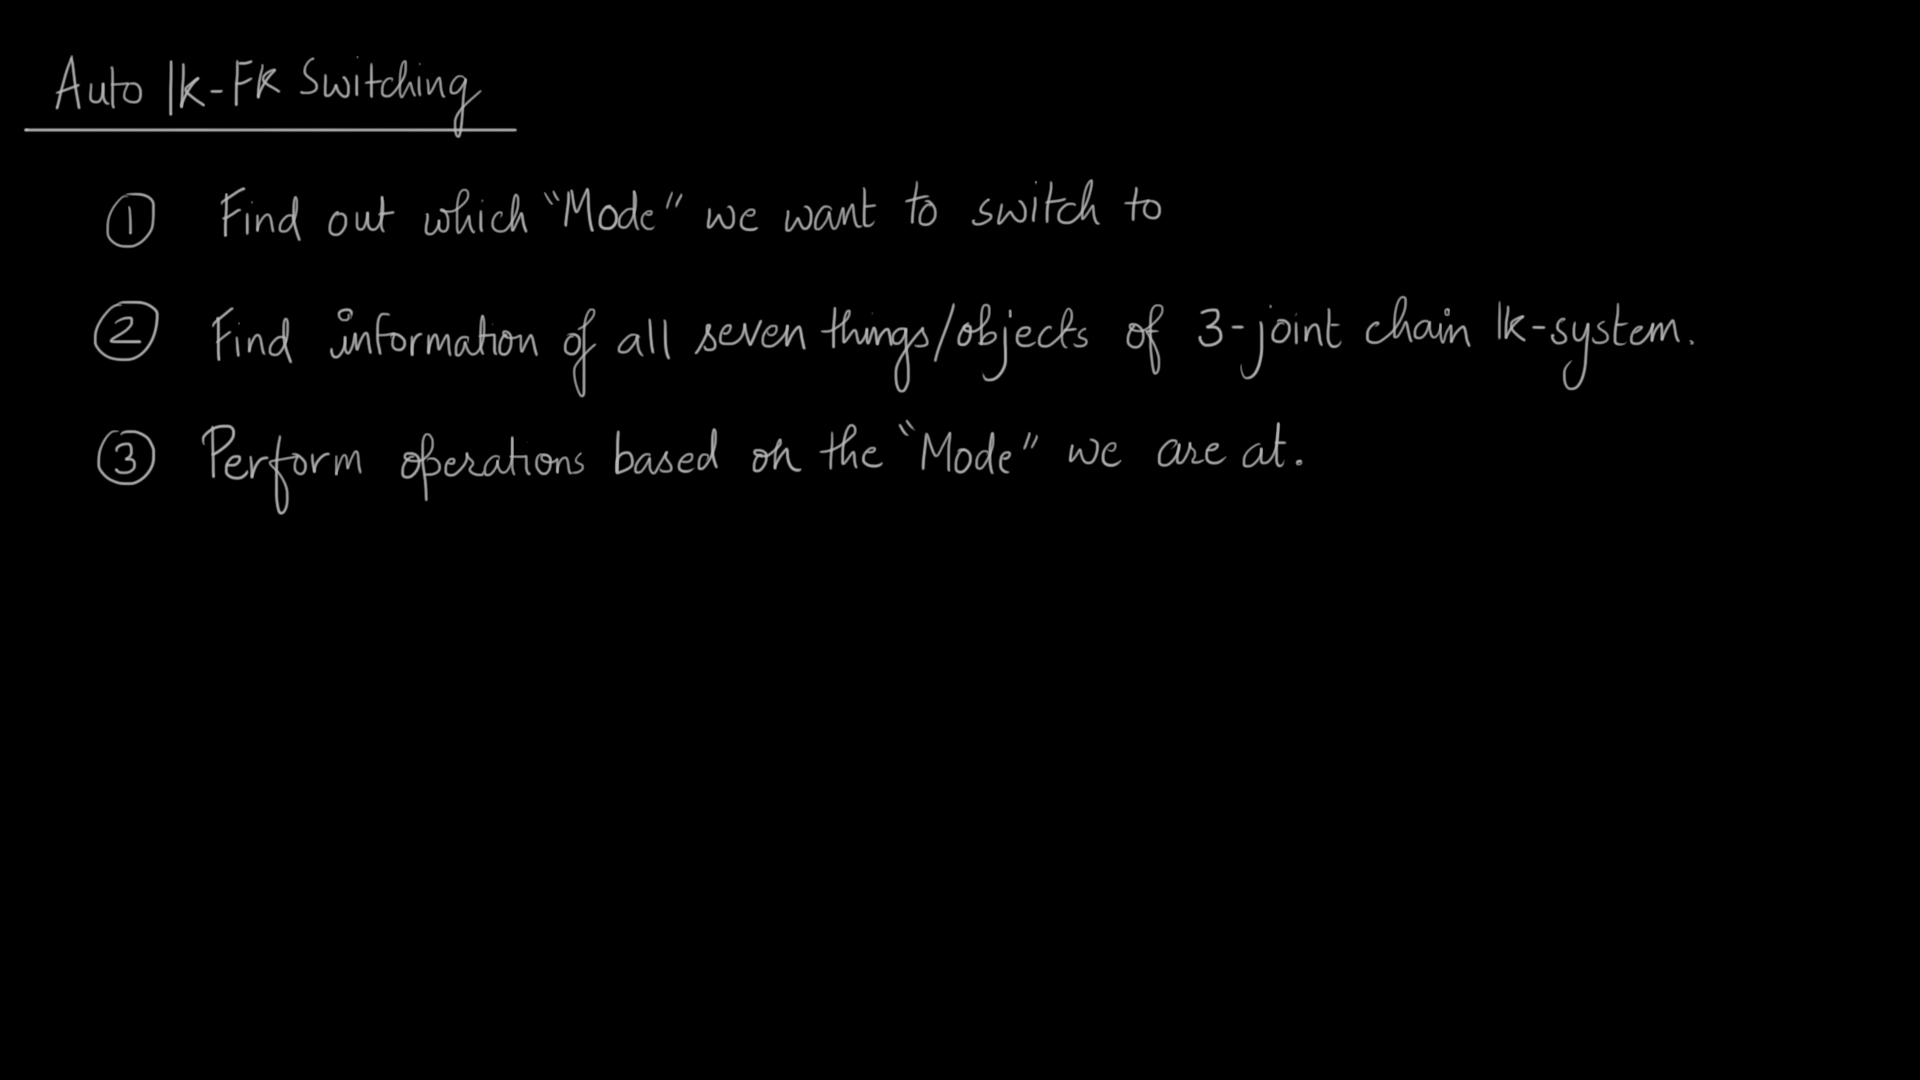 Auto Ik-Fk Switching
① Find out which "Mode" we want to switch to
② Find information of all seven things/objects of 3-joint chain Ik-system.
③ Perform operations based on the "Mode" we are at.